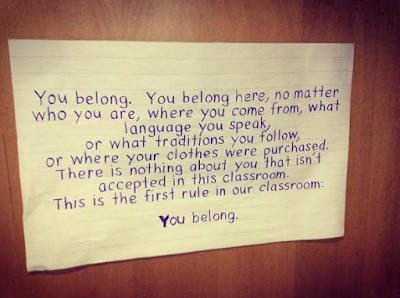 You belong. You belong here, no matter
who you are, where you come from, what
language you speak,
or what traditions you follow,
or where your clothes were purchased.
There is nothing about you that isn't
accepted in this classroom.
This is the first rule in our classroom:
You belong.